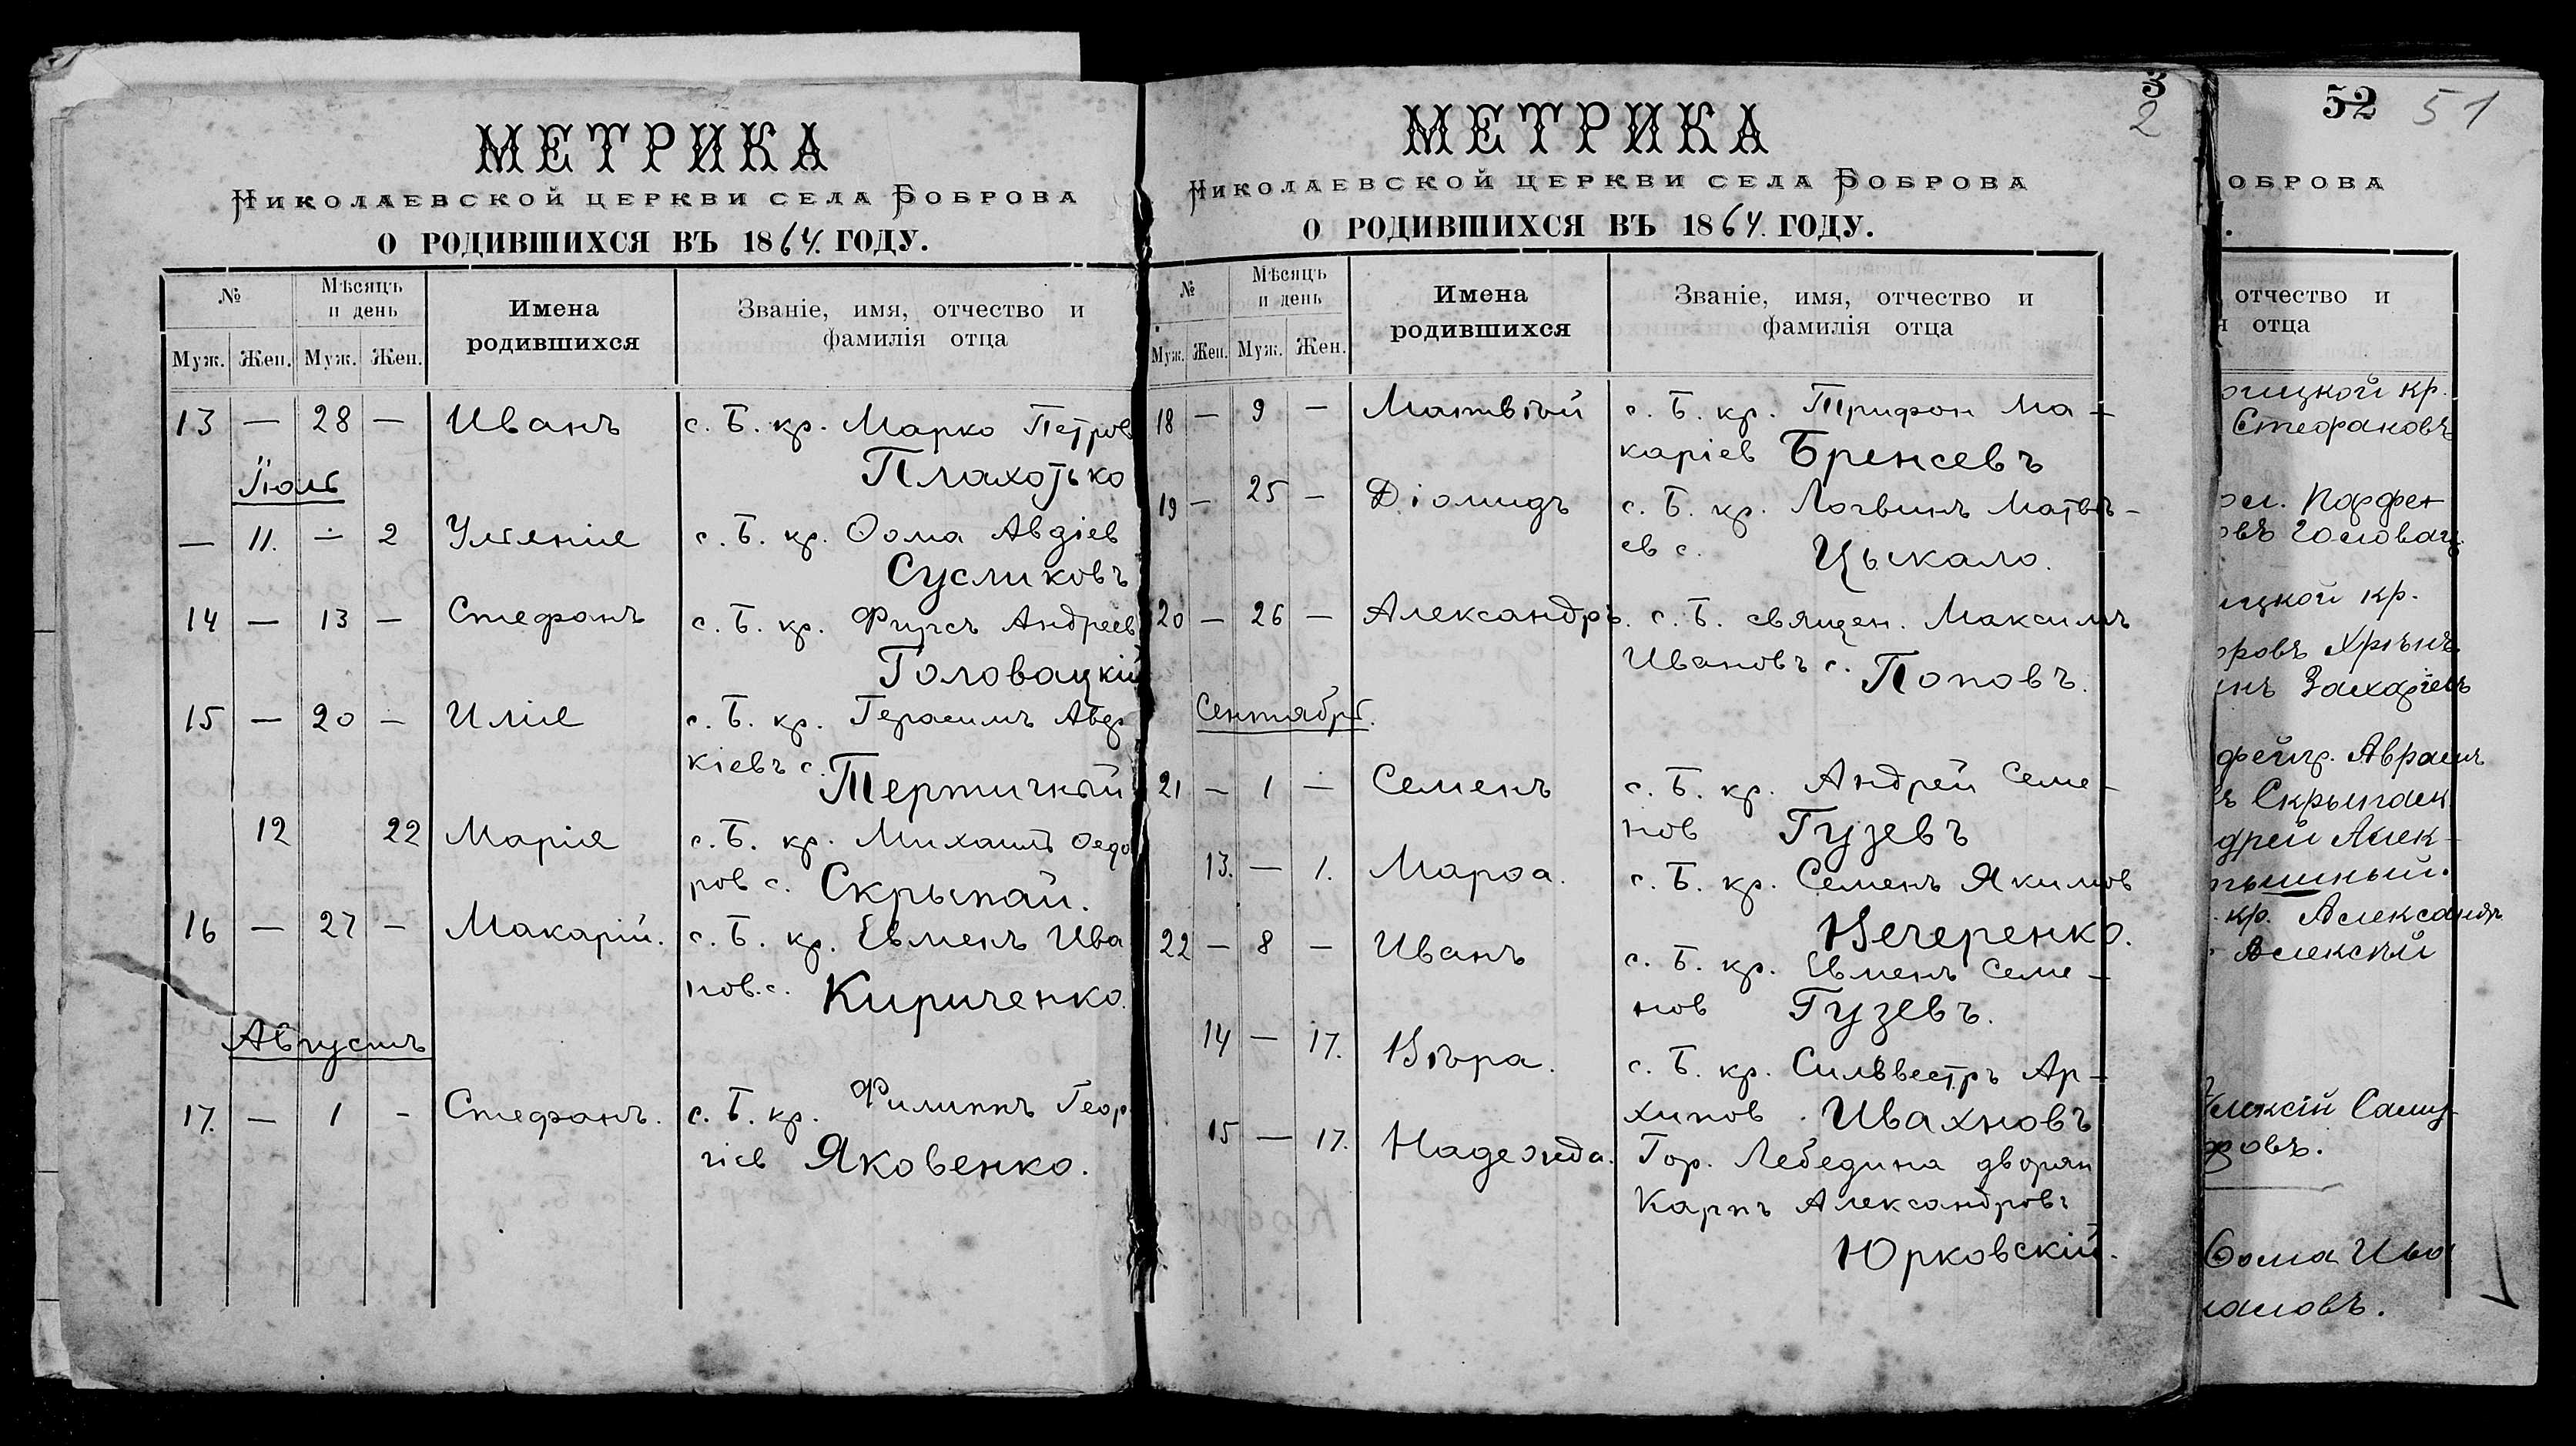 МЕТРИКА
Николаевской церкви села Боброва
О РОДИВШИХСЯ ВЪ 1864. ГОДУ.
№
Мѣсяцъ и день
Имена родившихся
Званіе, имя, отчество и фамилія отца
Муж. Жен. Муж. Жен.
13 — 28 — Иванъ с. Б. кр. Марко Петров
Плахотько
Іюль
— 11. — 2 Ульянія с. Б. кр. Ѳома Авдіев
Сусликовъ
14 — 13 — Стефанъ с. Б. кр. Фирсъ Андреев
Головацкій
15 — 20 — Илія с. Б. кр. Герасимъ Авдо
кіевъ с. Тертичный
12 22 Марія с. Б. кр. Михаилъ Ѳедо
ров с. Скрыпай.
16 — 27 — Макарій. с. Б. кр. Евменъ Ива
нов. с. Кириченко.
Августъ
17. — 1 — Стефанъ. с. Б. кр. Филиппъ Геор
гіев Яковенко.
3
2
МЕТРИКА
Николаевской церкви села Боброва
О РОДИВШИХСЯ ВЪ 1864. ГОДУ.
№
Мѣсяцъ и день
Имена родившихся
Званіе, имя, отчество и фамилія отца
Муж. Жен. Муж. Жен.
18 — 9 — Матвѣй с. Б. кр. Трифон Ма-
каріев Бренсевъ
19 — 25 — Діомидъ с. Б. кр. Логвинъ Матвѣ-
ев с. Цыкало.
20 — 26 — Александръ. с. Б. священ. Максимъ
Ивановъ с. Поповъ.
Сентябрь.
21 — 1 — Семенъ с. Б. кр. Андрей Семе-
нов Гузевъ
13. — 1. Марѳа. с. Б. кр. Семенъ Якимов
Нечеренко.
22 — 8 — Иванъ с. Б. кр. Евменъ Семе-
нов Гузевъ.
14 — 17. Вѣра. с. Б. кр. Сильвестръ Ар-
хипов. Ивахновъ
15 — 17. Надежда. Гор. Лебедина дворян
Карпъ Александровъ
Юрковскій.
52 51
оброва
отчество и
отца
кр.
Стефановъ
Парфен
кр.
Захаріевъ
Аврамъ
кр. Александръ
Алексѣй
Ѳома Ива